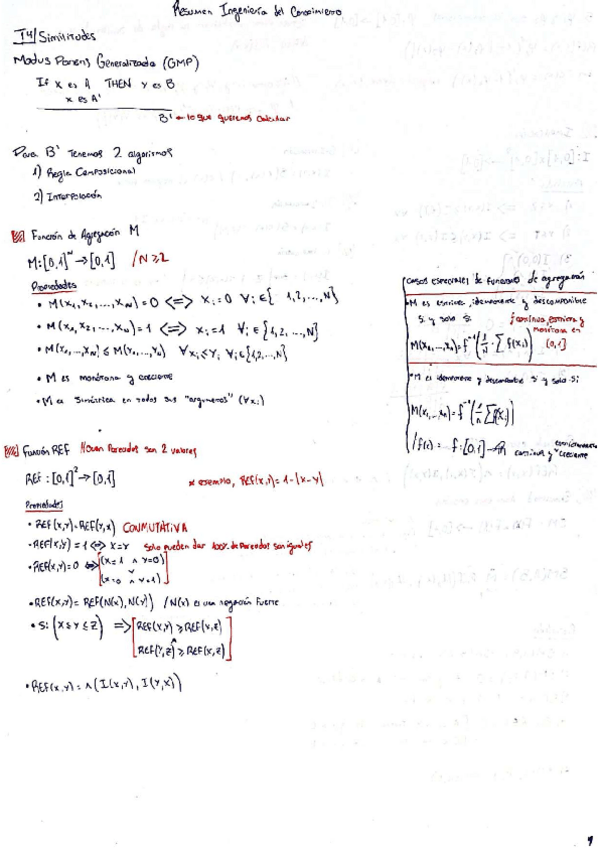 Resumen Ingeniería del Conocimiento
T4/Similitudes
Modus Ponens Generalizado (GMP)
If x es A THEN y es B
x es A'
B' ← lo que queremos calcular
Para B' tenemos 2 algoritmos
1) Regla Composicional
2) Interpolación
Función de Agregación M
M:[0,1]ᴺ→[0,1] /N≥2
Propiedades
• M(x₁,x₂,...,xₙ)=0 <=> xᵢ=0 ∀i∈{1,2,...,N}
• M(x₁,x₂,...,xₙ)=1 <=> xᵢ=1 ∀i∈{1,2,...,N}
• M(x₁,...,xₙ)≤M(y₁,...,yₙ) ∀xᵢ≤yᵢ ∀i∈{1,2,...,N}
• M es monótona y creciente
• M es simétrica en todos sus "argumentos" (∀xᵢ)
Casos especiales de funciones de agregación
• M es estricta, idempotente y descomponible
si y solo si
f continua, estricta y
monótona en
[0,1]
M(x₁,...,xₙ)=f⁻¹(1/N · ∑ f(xᵢ))
• M es idempotente y descomponible si y solo si
M(x₁,...,xₙ)=f⁻¹(1/n ∑ f(xᵢ))
continua y creciente
Función REF
son 2 valores
REF:[0,1]²→[0,1]
* ejemplo, REF(x,y)=1-|x-y|
Propiedades
• REF(x,y)=REF(y,x) CONMUTATIVA
• REF(x,y)=1 <=> x=y Solo pueden dar 100% de parecidos son iguales
• REF(x,y)=0 <=> (x=1 ∧ y=0)
∨
(x=0 ∧ y=1)
• REF(x,y)=REF(N(x),N(y)) /N(x) es una negación fuerte
• Si (x≤y≤z) => REF(x,y)≥REF(x,z)
∧
REF(y,z)≥REF(x,z)
• REF(x,y)=∧(I(x,y),I(y,x))
1